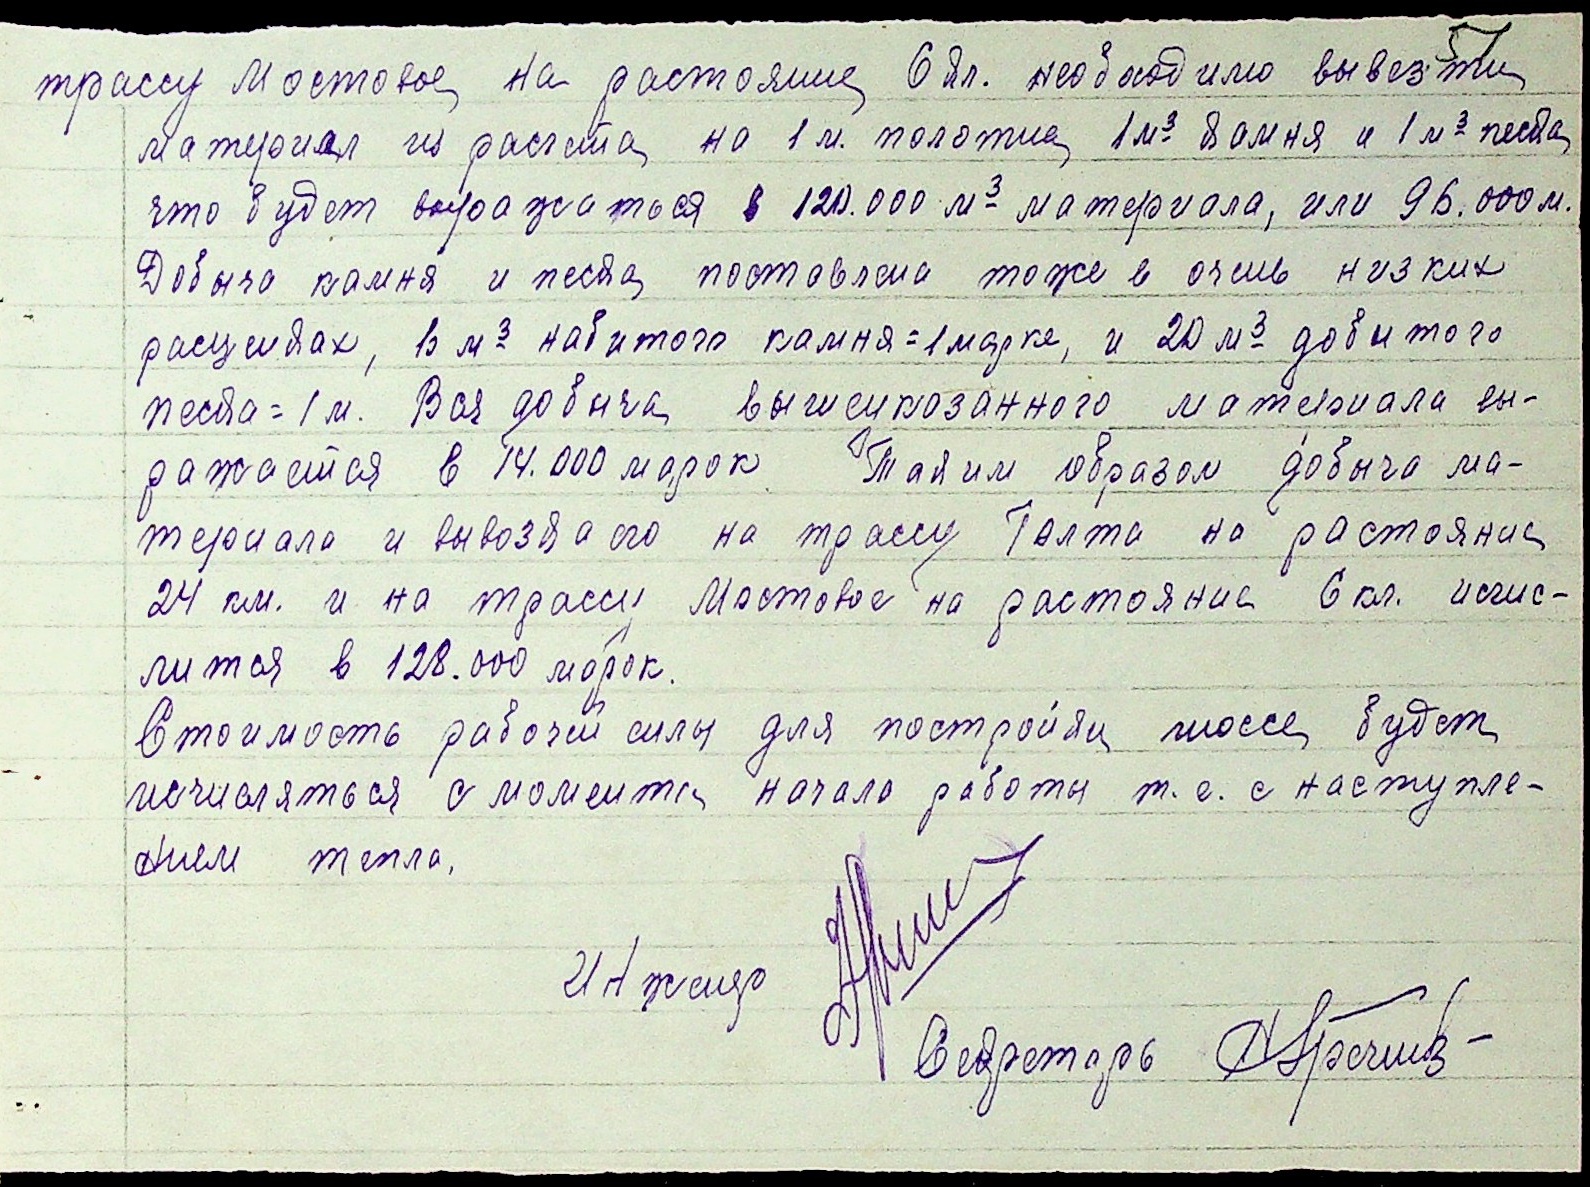 трассу Мостовое на растояние 6 кл. необходимо вывезти
материал из расчета на 1 м. полотна 1 м³ камня и 1 м³ песка
что будет выражаться в 120.000 м³ материала, или 96.000 м.
Добыча камня и песка поставлена тоже в очень низких
расценках, м³ набитого камня = 1 марке, и 20 м³ добытого
песка = 1 м. Вся добыча вышеуказанного материала вы-
ражается в 14.000 марок Таким образом добыча ма-
териала и вывозка его на трассу на растояние
24 км. и на трассу Мостовое на растояние 6 кл. исчис-
лится в 128.000 марок.
Стоимость рабочей силы для постройки шоссе будет
исчисляться с момента начала работы т.е. с наступле-
нием тепла.
Инженер
Секретарь